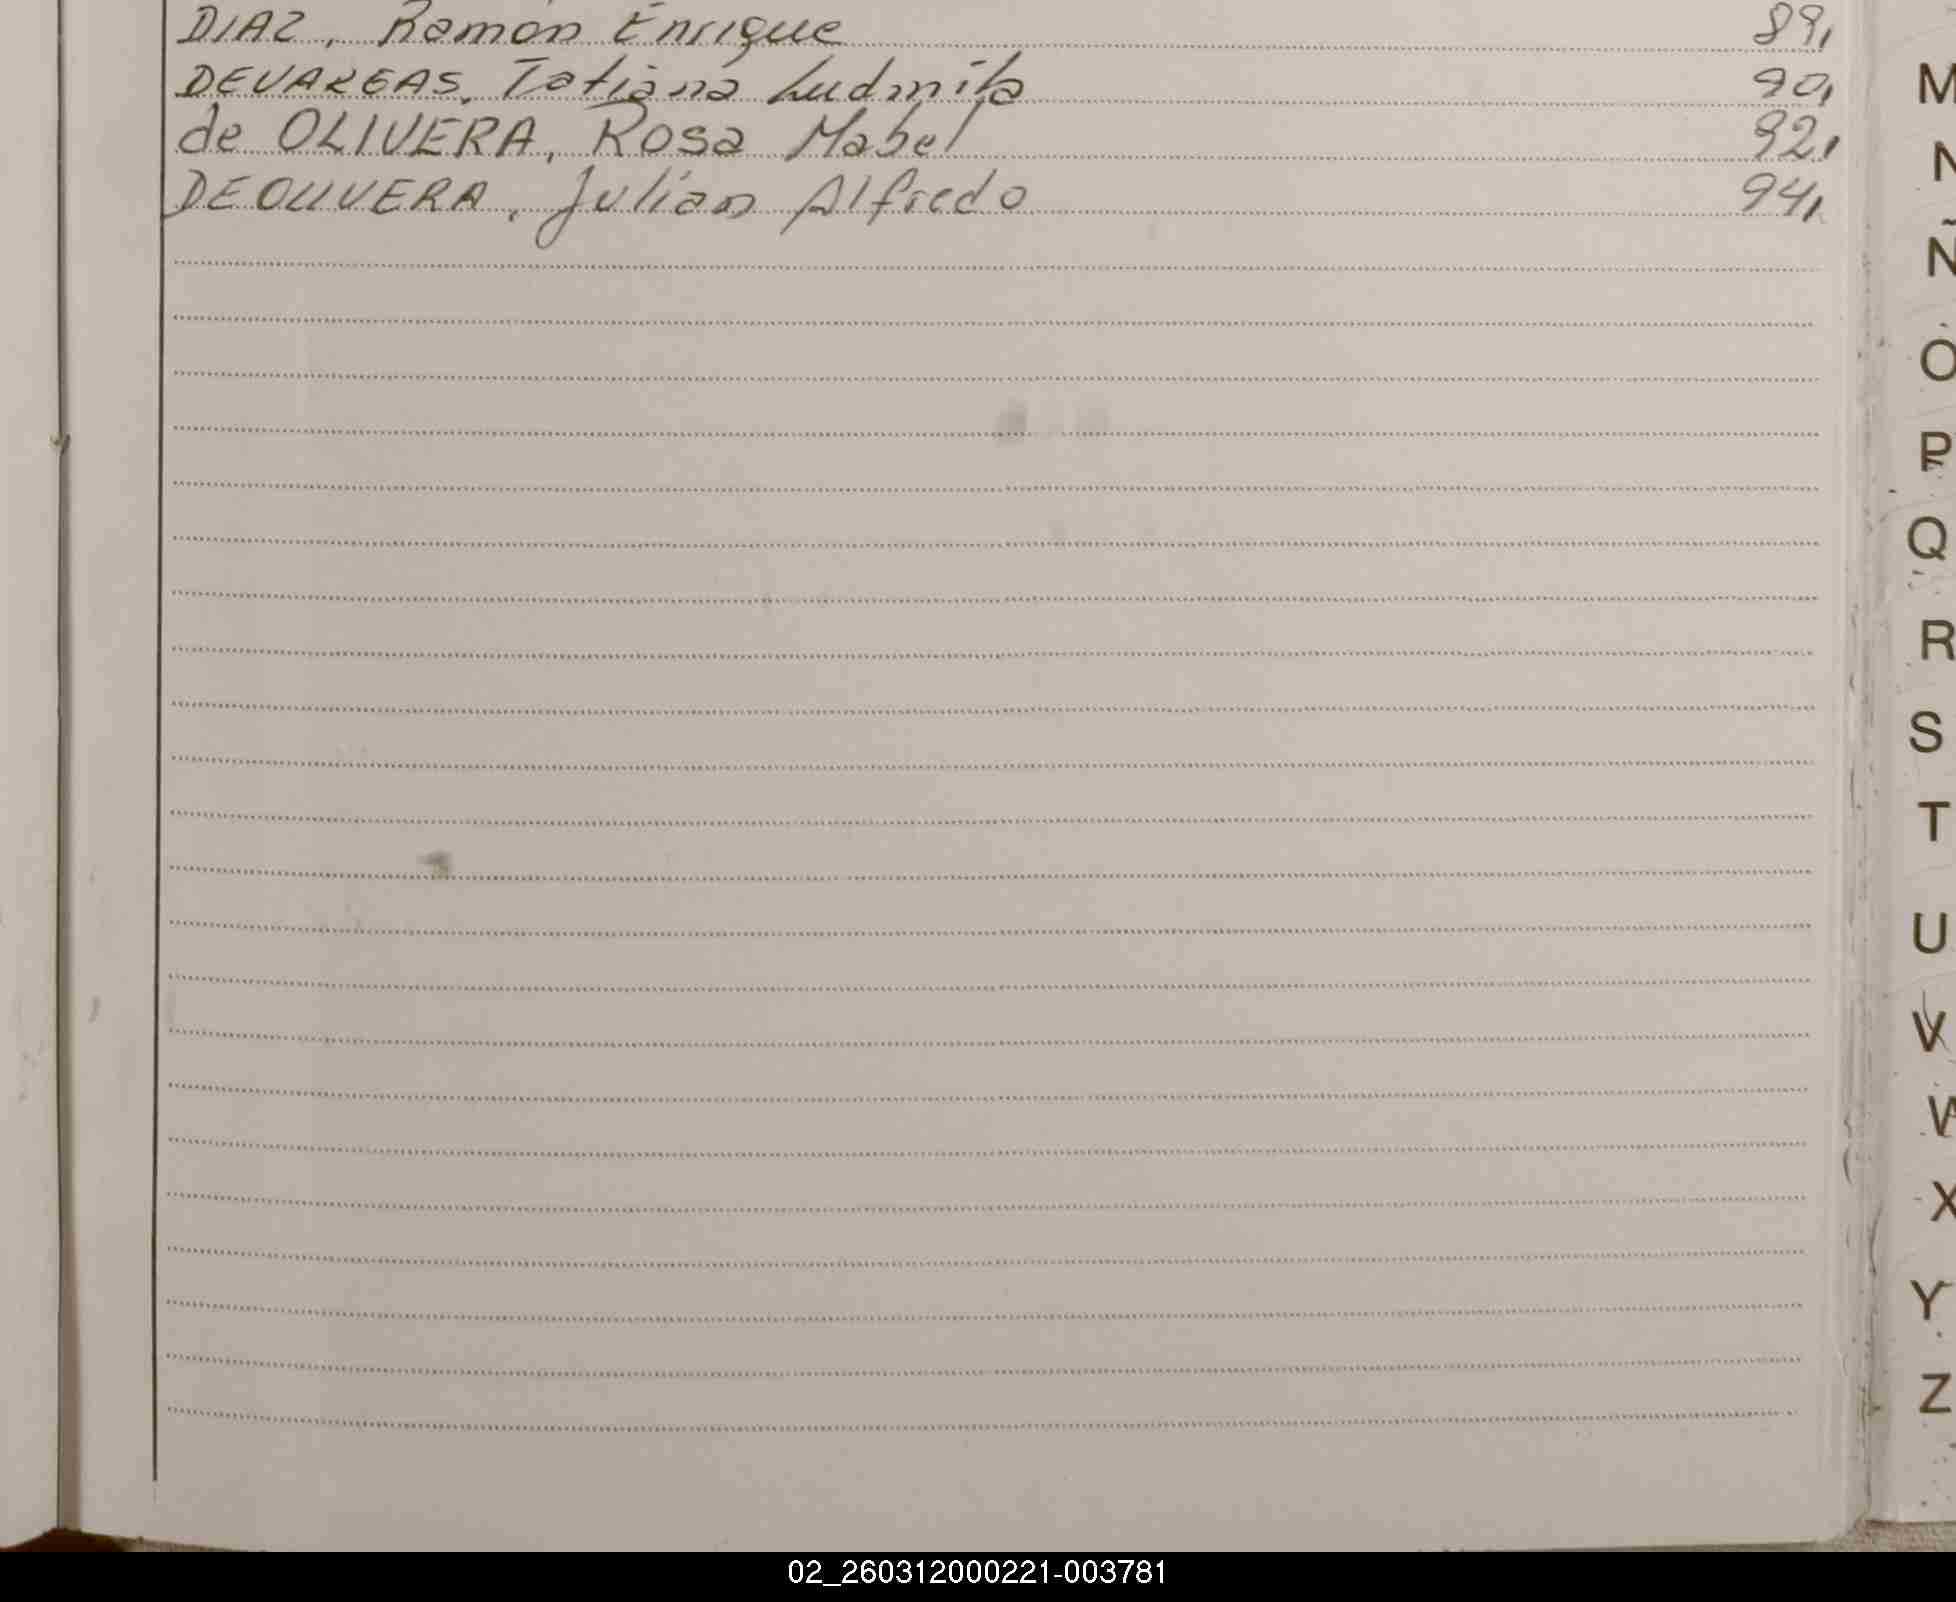 DIAZ, Ramón Enrique 89,
DEVARGAS, Tatiana Ludmila 90,
de OLIVERA, Rosa Mabel 92,
DEOLIVERA, Julian Alfredo 94,
M
N
Ñ
O
P
Q
R
S
T
U
V
W
X
Y
Z
02_260312000221-003781